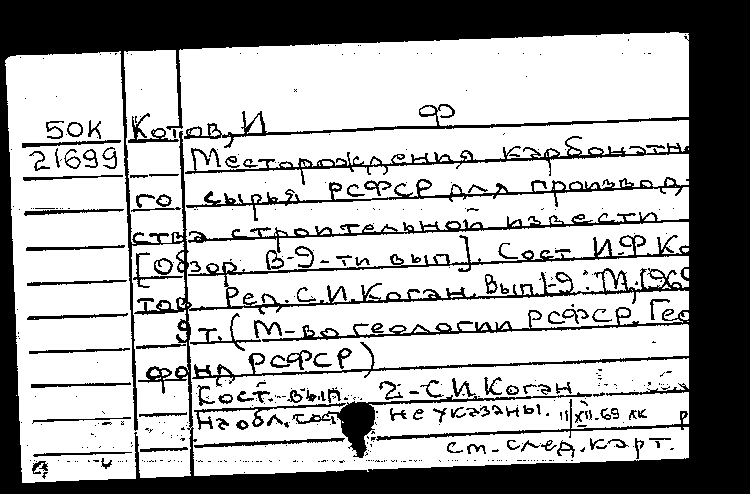 Ф
50К Котов, И
21699 Месторождения карбонатн
го сырья РСФСР для производ-
ства строительной извести
[Обзор. В-9-ти вып]. Сост. И.Ф.Ко
тов. Ред. С.И.Коган. Вып1-9. М., 1969
9 т. (М-во геологии РСФСР. Гео
фонд РСФСР)
Сост. вып. 2-С.И.Коган.
На обл. сост. не указаны. 11/XII.69 лк р
см. след. карт.